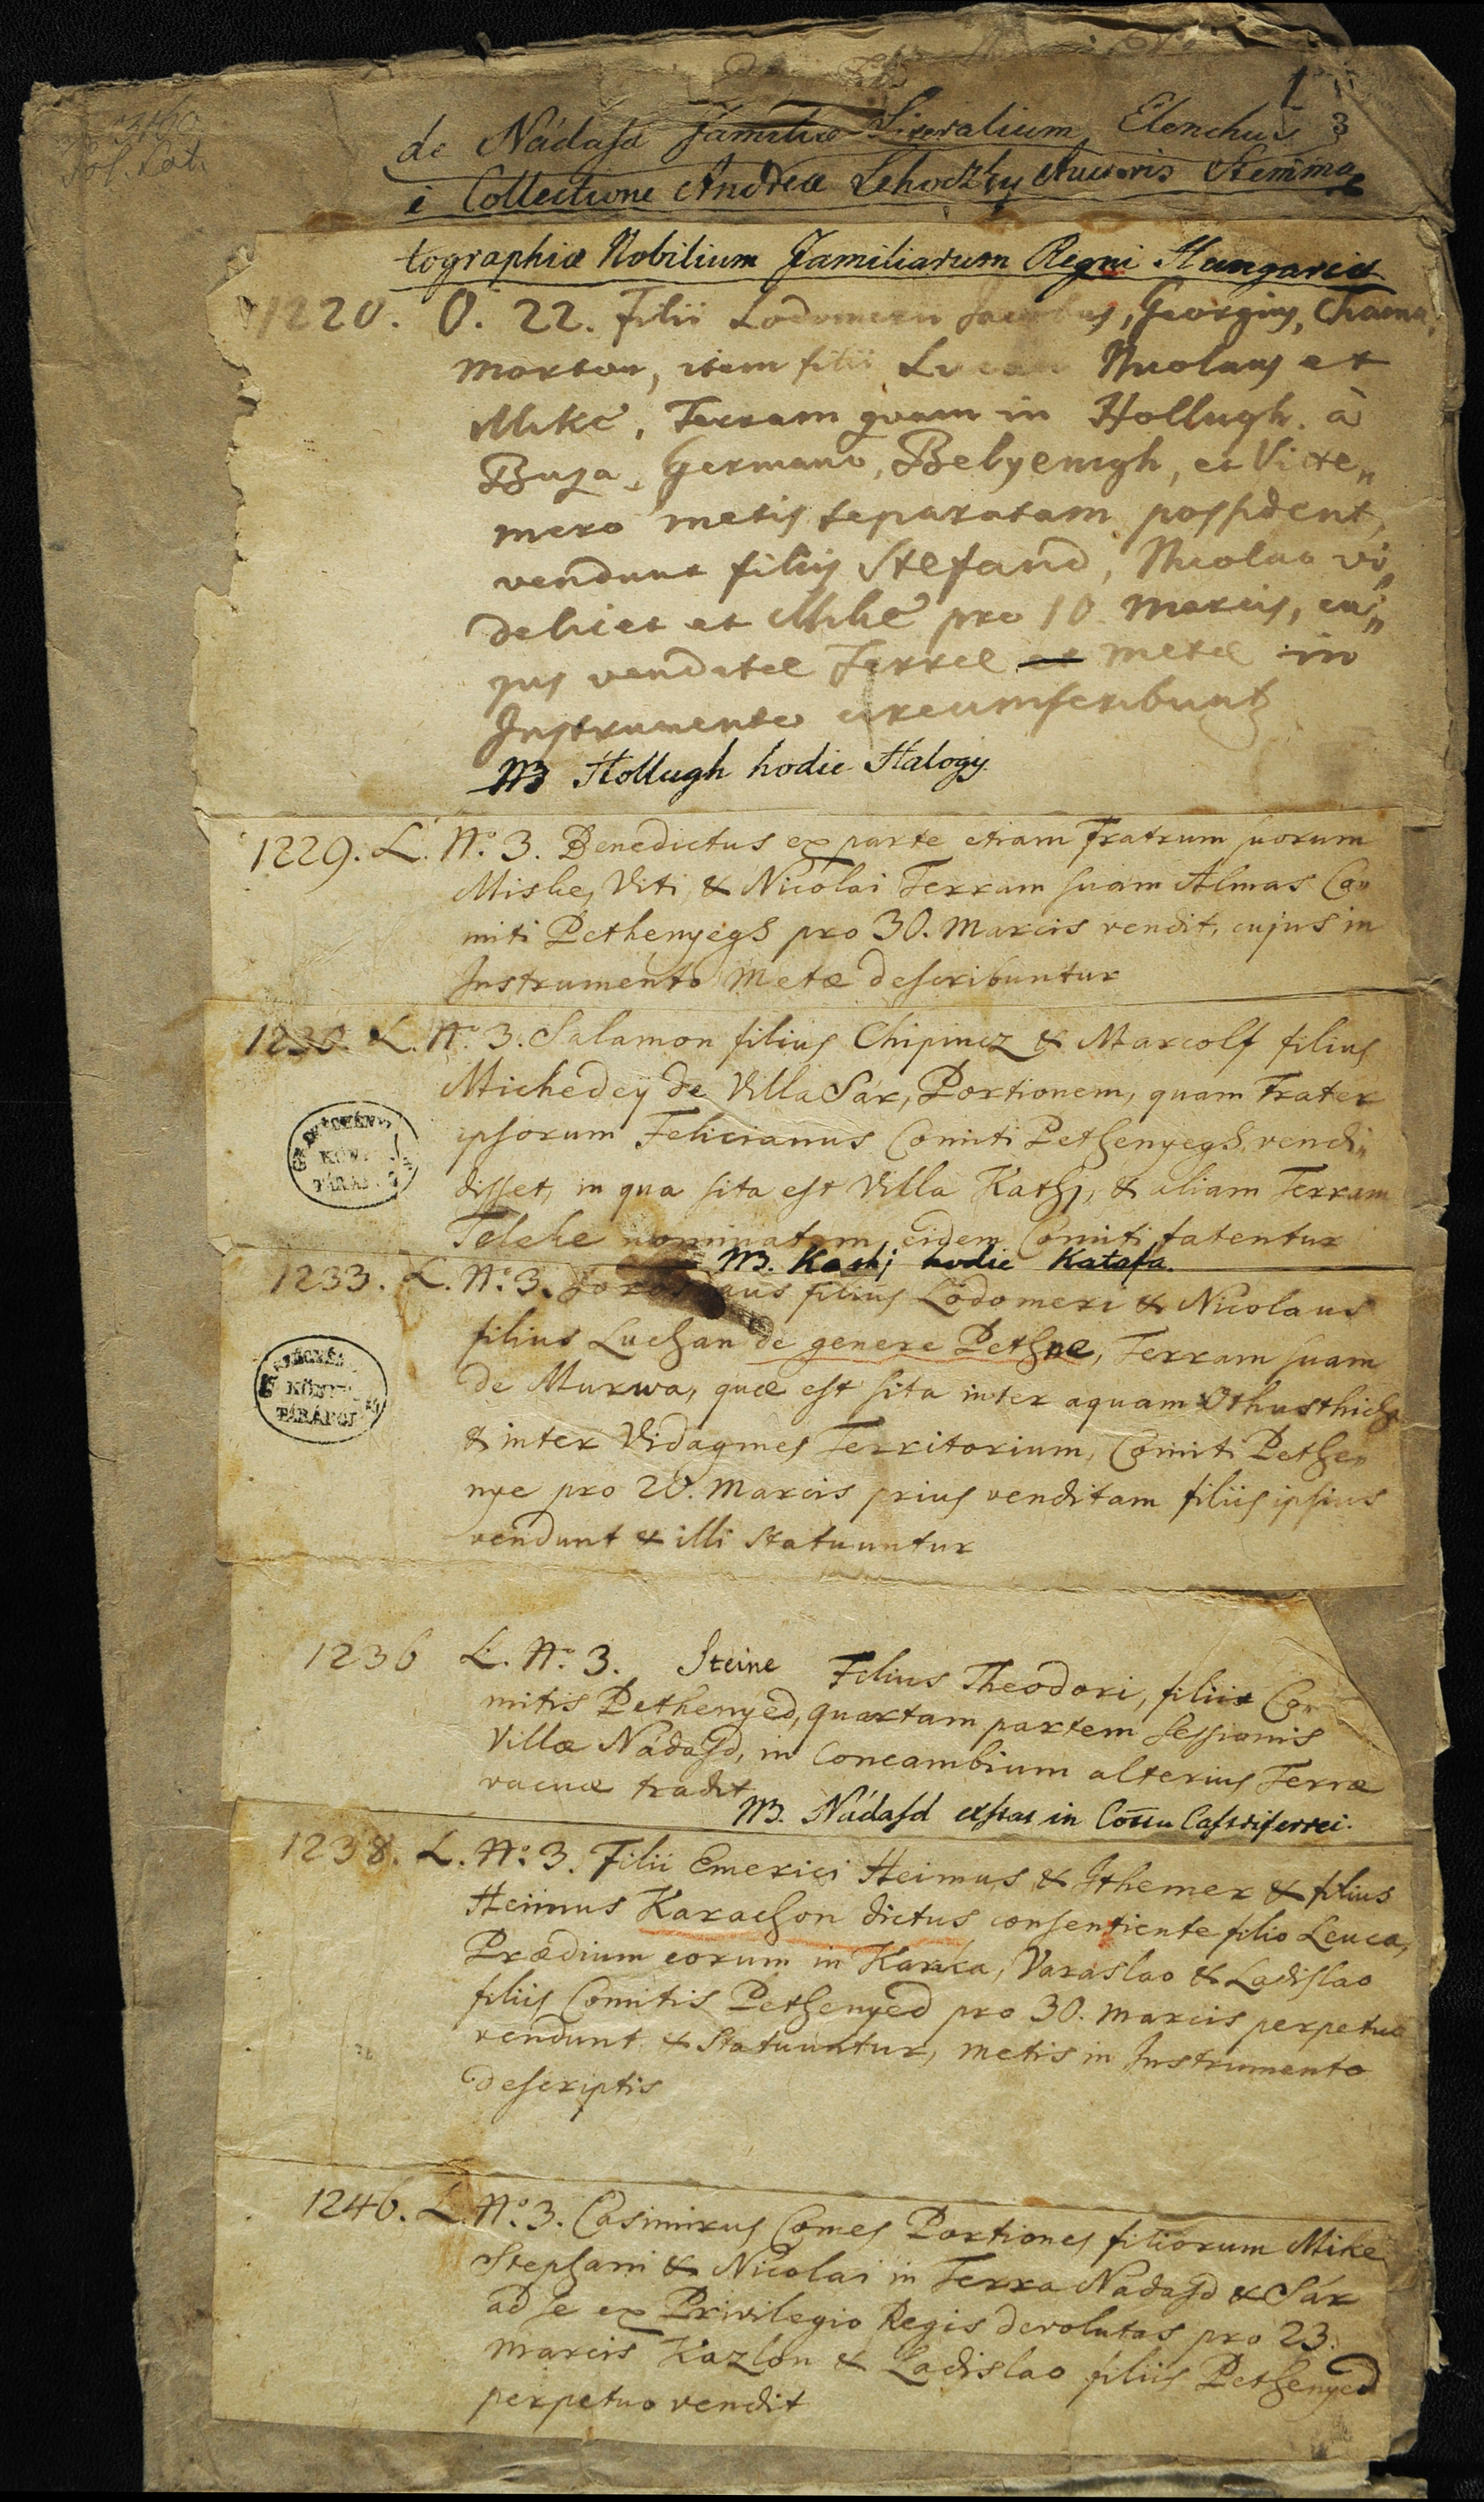 1
3
de Nádasd Familiæ Literalium Elenchus
e Collectione Andreæ Lehoczky Auctoris Stemma
tographiæ Nobilium Familiarum Regni Hungariæ
1220. O. 22. Filii Lodomeri Jacobus, Georgius, Chama,
Morton, item filii Lucan Nicolaus et
Mike, Terram quam in Hollugh à
Buza, Germano, Bebyenigh, et Vite„
mero metis separatam possident,
vendunt filiis Stefand, Nicolao vi„
delicet et Mike pro 10 Marcis, cu„
jus venditæ Terræ metæ in
Instrumento circumscribunt
NB Hollugh hodie Halogy.
1229. L. No. 3. Benedictus ex parte etiam Fratrum suorum
Miske, Viti, & Nicolai Terram suam Almas Co„
miti Pethenyegh pro 30. Marcis vendit, cujus in
Instrumento Metæ describuntur
1230. L. No. 3. Salamon filius Chipincz & Marcolf filius
Michedey de Villa Sár, Portionem, quam Frater
ipsorum Felicianus Comiti Pethenyegh vendi„
disset, in qua sita est Villa Kathj, & aliam Terram
Teleke nominatam, eidem Comiti fatentur
NB. Kathj hodie Katafa.
ORSZÁGGYŰLÉSI KÖNYVTÁRÁBÓL
1233. L. No. 3. filius Lodomeri & Nicolaus
filius Luchan de genere Pethne, Terram suam
de Murwa, quæ est sita inter aquam Othusthich
& inter Vidagmes Territorium, Comiti Pethe„
nye pro 20. Marcis prius venditam filiis ipsius
vendunt & illi statuuntur
KÖNYV
TÁRÁBÓL
1236 L. No. 3. Steine Filius Theodori, filiis Co„
mitis Pethenyed, quartam partem sessionis
Villæ Nádasd, in Concambium alterius Terræ
vacuæ tradit
NB. Nádasd exstat in Cottu Castriferrei.
1238. L. No. 3. Filii Emerici Heimus & Ithemer & filius
Heimus Karachon dictus consentiente filio Leuca,
Prædium eorum in Karka, Varaslao & Ladislao
filiis Comitis Pethenyed pro 30. marcis perpetuo
vendunt & statuuntur, metis in Instrumento
descriptis
1246. L. No. 3. Casimirus Comes Portiones filiorum Mike
Stephani & Nicolai in Terra Nadasd & Sár
ad se ex Privilegio Regis devolutas pro 23.
Marcis Kazlou & Ladislao filiis Pethenyed
perpetuo vendit